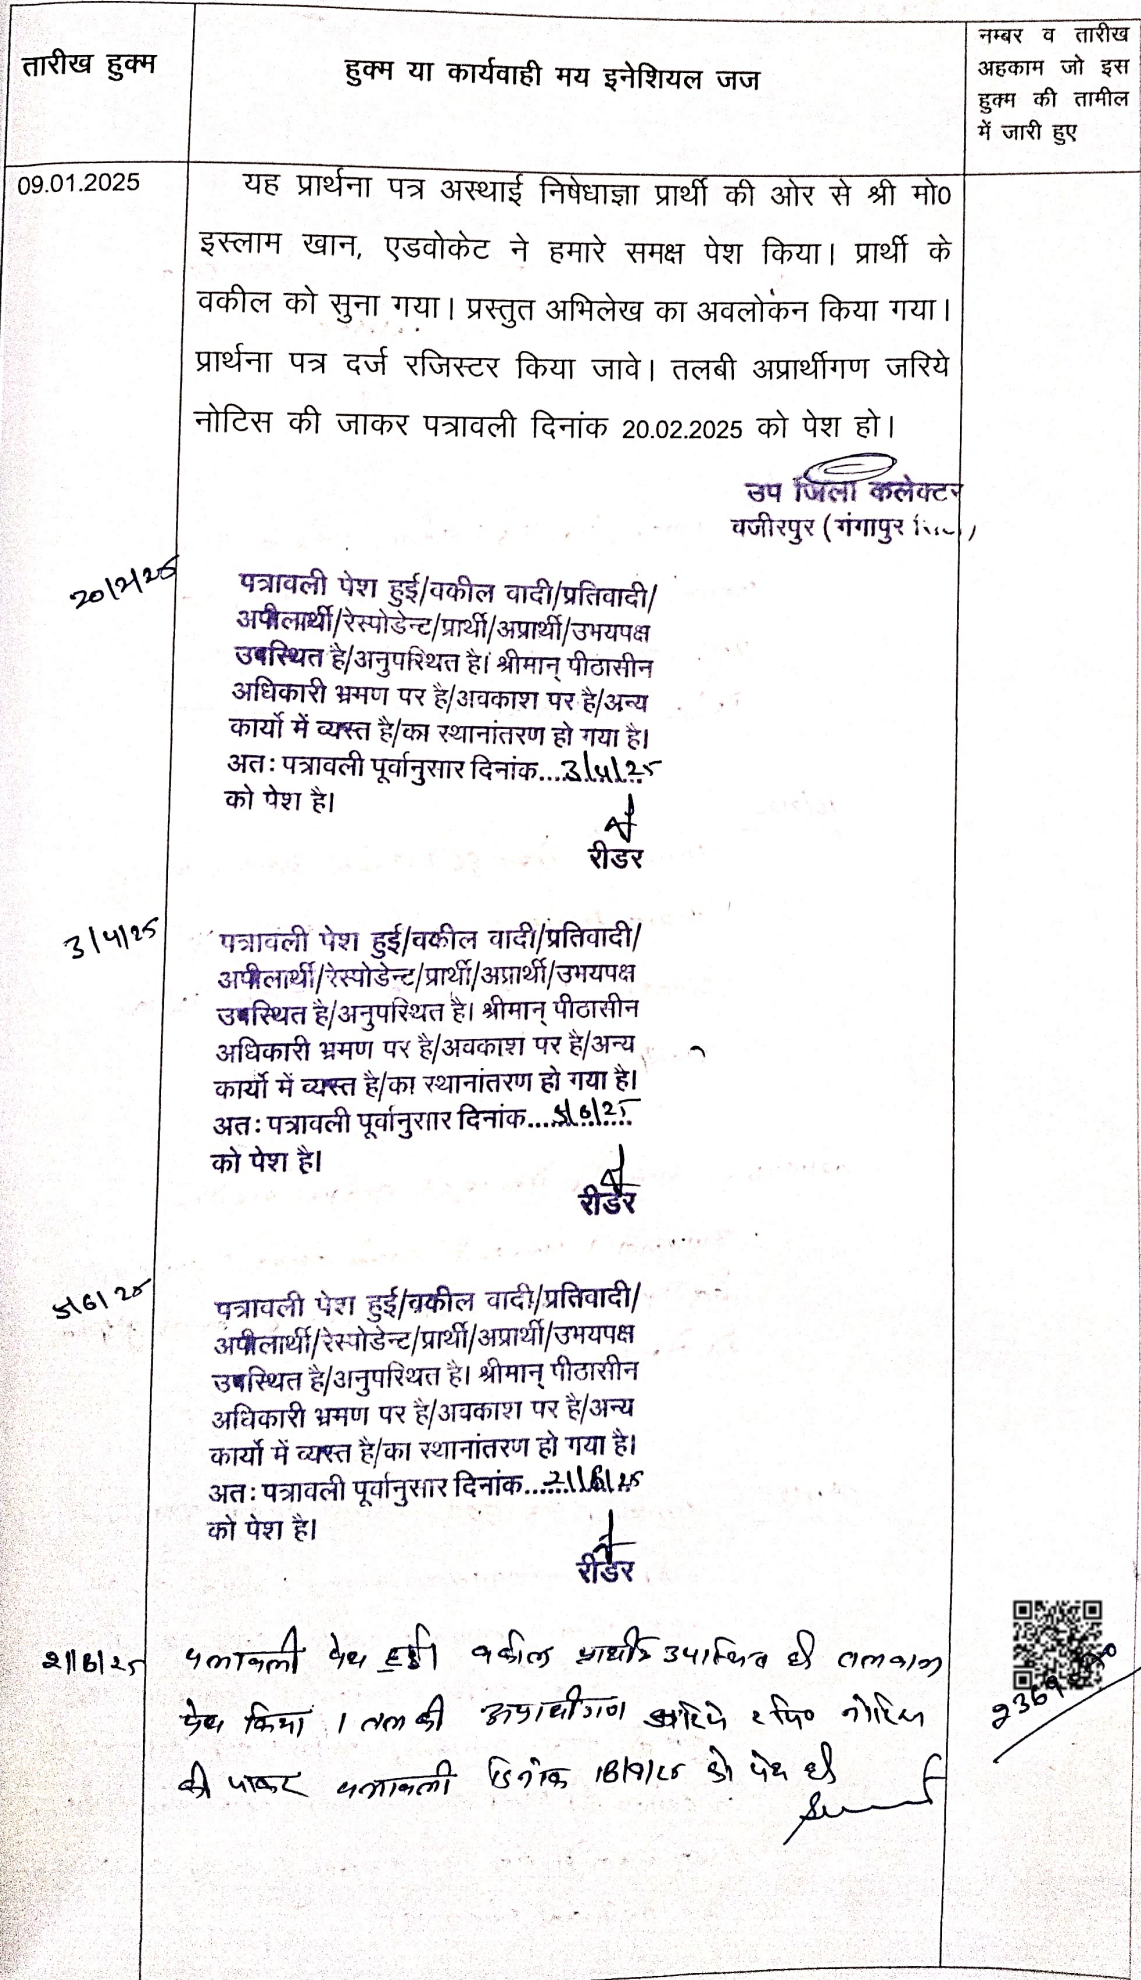 तारीख हुक्म
हुक्म या कार्यवाही मय इनेशियल जज
नम्बर व तारीख
अहकाम जो इस
हुक्म की तामील
में जारी हुए
09.01.2025
यह प्रार्थना पत्र अस्थाई निषेधाज्ञा प्रार्थी की ओर से श्री मो0
इस्लाम खान, एडवोकेट ने हमारे समक्ष पेश किया। प्रार्थी के
वकील को सुना गया। प्रस्तुत अभिलेख का अवलोकन किया गया।
प्रार्थना पत्र दर्ज रजिस्टर किया जावे। तलबी अप्रार्थीगण जरिये
नोटिस की जाकर पत्रावली दिनांक 20.02.2025 को पेश हो।
उप जिला कलेक्टर
वजीरपुर (गंगापुर
20/2/25
पत्रावली पेश हुई/वकील वादी/प्रतिवादी/
अपीलार्थी/रेस्पोडेन्ट/प्रार्थी/अप्रार्थी/उभयपक्ष
उपस्थित है/अनुपस्थित है। श्रीमान् पीठासीन
अधिकारी भ्रमण पर है/अवकाश पर है/अन्य
कार्यो में व्यस्त है/का स्थानांतरण हो गया है।
अतः पत्रावली पूर्वानुसार दिनांक...3/4/25
को पेश है।
रीडर
3/4/25
पत्रावली पेश हुई/वकील वादी/प्रतिवादी/
अपीलार्थी/रेस्पोडेन्ट/प्रार्थी/अप्रार्थी/उभयपक्ष
उपस्थित है/अनुपस्थित है। श्रीमान् पीठासीन
अधिकारी भ्रमण पर है/अवकाश पर है/अन्य
कार्यो में व्यस्त है/का स्थानांतरण हो गया है।
अतः पत्रावली पूर्वानुसार दिनांक.....5/6/25
को पेश है।
रीडर
5/6/25
पत्रावली पेश हुई/वकील वादी/प्रतिवादी/
अपीलार्थी/रेस्पोडेन्ट/प्रार्थी/अप्रार्थी/उभयपक्ष
उपस्थित है/अनुपस्थित है। श्रीमान् पीठासीन
अधिकारी भ्रमण पर है/अवकाश पर है/अन्य
कार्यो में व्यस्त है/का स्थानांतरण हो गया है।
अतः पत्रावली पूर्वानुसार दिनांक.....21/6/25
को पेश है।
रीडर
21/6/25
पत्रावली पेश हुई। वकील प्रार्थी उपस्थित है। तलवाना
पेश किया। तलबी अप्रार्थीगण जरिये रजि० नोटिस
की जाकर पत्रावली दिनांक 18/9/25 को पेश हो